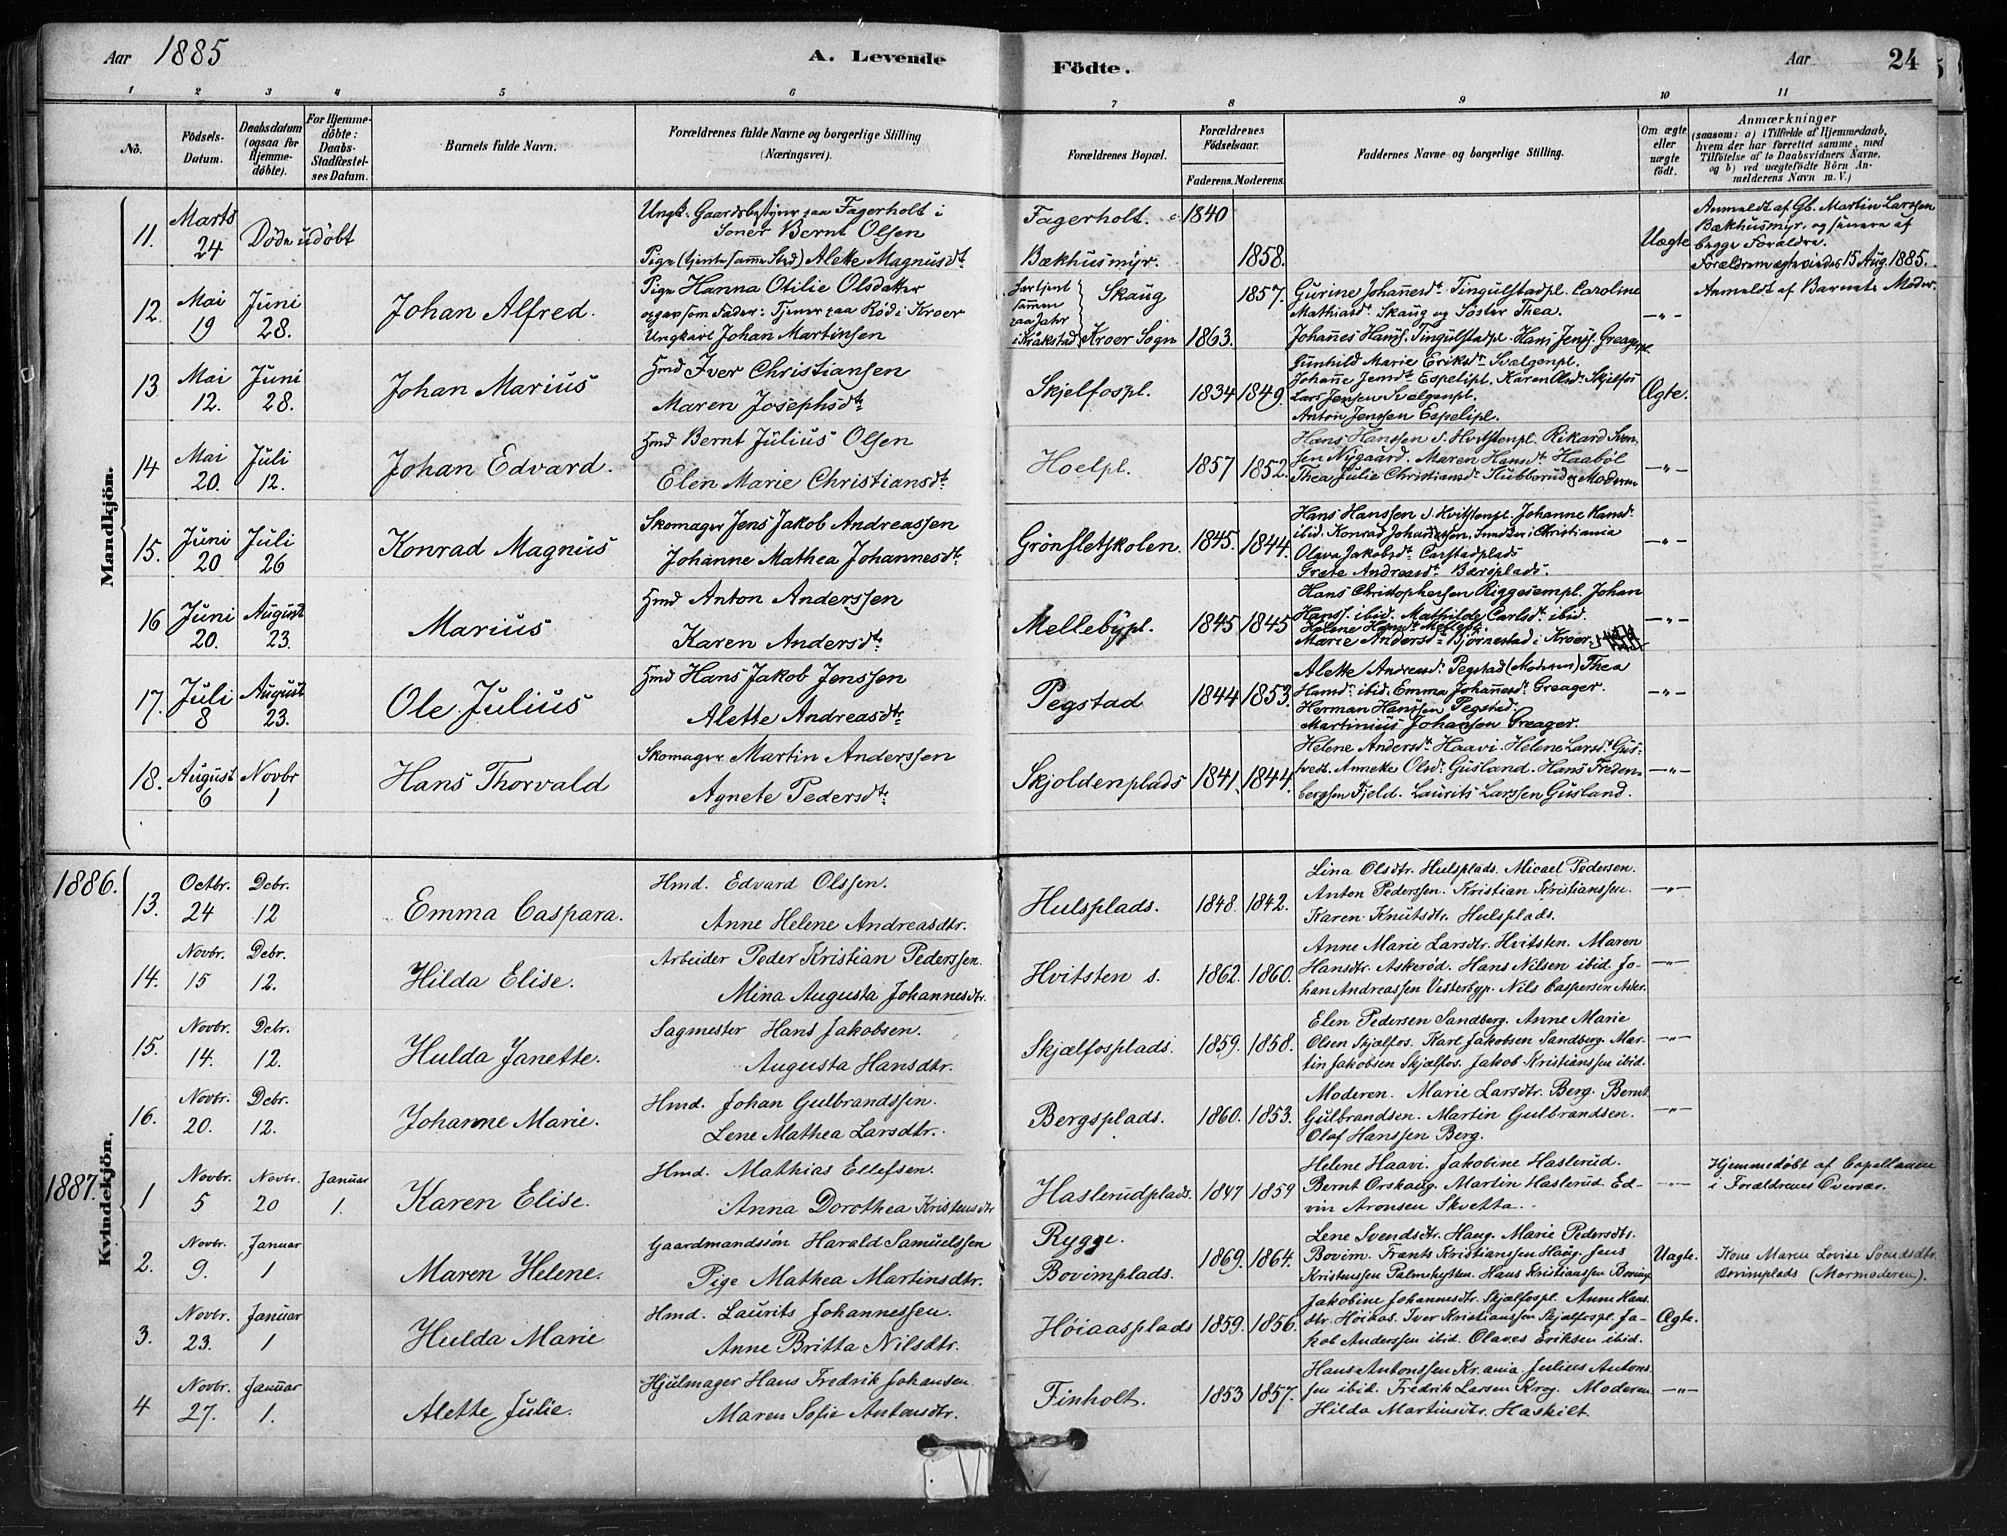 Aar 1885
A. Levende
Födte.
Aar
24
1 2 3 4 5 6 7 8 9 10 11
No.
Födsels-Datum.
Daabsdatum (ogsaa for Hjemmedöbte).
For Hjemmedöbte: Daabs-Stadfæstelses Datum.
Barnets fulde Navn.
Forældrenes fulde Navne og borgerlige Stilling (Næringsvei).
Forældrenes Bopæl.
Forældrenes Födselsaar.
Faderens. Moderens.
Faddernes Navne og borgerlige Stilling.
Om ægte eller uægte födt.
Anmærkninger
(saasom: a) i Tilfælde af Hjemmedaab, hvem der har forrettet samme, med Tilföielse af to Daabsvidners Navne, og b) ved uægtefödte Börn Anmelderens Navn m. V.)
Mandkjön.
11. Marts 24 Döde udöbt
Ungk. Gaardsbestyrer paa Fagerholt i
Soner Bernt Olsen
Pige (tjente samme Sted) Alette Magnusdtr
Fagerholt.
Bækhusmyr.
1840
1858.
Uægte
Anmeldt af Gb. Martin Larssen
Bækhusmyr, og senere af
begge Forældre.
Forældrene ægteviede 15 Aug. 1885.
12. Mai 19 Juni 28. Johan Alfred.
Pige Hanna Otilie Olsdatter
opgav som Fader: Tjener paa Röd i Kroer
Ungkarl Johan Martinsen
Skaug
Kroer Sogn
1857.
1863.
Gurine Johannesdtr Tingulstadpl. Caroline
Mathiasdtr Skaug og Söster Thea.
Johannes Hanss. Tingulstadpl. Hans Jenss. Greagerpl.
-"-
Anmeldt af Barnets Moder.
13. Mai 12. Juni 28. Johan Marius
Hmd Iver Christiansen
Maren Josephsdtr
Skjelfospl.
1834 1849.
Gunhild Marie Eriksdtr Svælgenpl.
Johanne Jensdtr Espelipl. Karen Olsdtr Skjelfos
Lars Jenssen Svælgenpl.
Anton Jenssen Espelipl.
Ægte.
14 Mai 20. Juli 12. Johan Edvard.
Hmd Bernt Julius Olsen
Elen Marie Christiansdtr
Hoelpl.
1857 1852.
Hans Hanssen s. Hvitstenpl. Rikard Sven-
sen Nygaard. Maren Hansdtr Haaböl
Thea Julie Christiansdtr Stubberud og Moderen
-"-
15. Juni 20 Juli 26 Konrad Magnus
Skomager Jens Jakob Andreassen
Johanne Mathea Johannesdtr
Grönsletskolen.
1845. 1844.
Hans Hanssen s. Hvitstenpl. Johanne Hansdtr
ibid. Konrad Johannessen, Snedker i Christiania
Olava Jakobsdtr Carstadplads
Grete Andreasdtr Bærsplads.
-"-
16 Juni 20. August 23. Marius
Hmd Anton Anderssen
Karen Andersdtr
Mellebypl.
1845 1845
Hans Christophersen Riggesempl. Johan
Hanss. ibid. Mathilde Carlsdtr ibid.
Helene Hansdtr Mellebypl.
Marie Andersdtr Björnestad i Kroer
-"-
17. Juli 8 August 23. Ole Julius
Hmd Hans Jakob Jenssen
Alette Andreasdtr
Pegstad
1844 1853.
Alette Andreasdtr Pegstad (Moderen) Thea
Hansdtr ibid. Emma Johannesdtr Greager.
Herman Hanssen Pegstad.
Martinius Johansen Greager.
-"-
18. August 6 Novbr 1 Hans Thorvald
Skomager Martin Anderssen
Agnete Pedersdtr
Skjoldenplads
1841. 1844.
Helene Andersdtr Haavi. Helene Larsdtr Gus-
tvedt. Annette Olsdtr Gusland. Hans Freden-
bergsen Fjeld. Laurits Larssen Gusland.
-"-
Kvindekjön.
1886.
13. Octbr. 24 Dcbr. 12 Emma Caspara.
Hmd. Edvard Olssen.
Anne Helene Andreasdtr.
Hulsplads.
1848. 1842.
Lina Olsdtr. Hulsplads. Micael Pedersen.
Anton Pederssen. Kristian Kristianssen.
Karen Knutsdtr. Hulsplads.
-"-
14. Novbr. 15 Dcbr. 12. Hilda Elise.
Arbeider Peder Kristian Pederssen.
Mina Augusta Johannesdtr.
Hvitsten s.
1862. 1860.
Anne Marie Larsdtr. Hvitsten. Maren
Hansdtr. Askeröd. Hans Nilsen ibid. Jo-
han Andreassen Vesterbyp. Nils Caspersen Asker.
-"-
15. Novbr. 14. Dcbr. 12. Hulda Janette.
Sagmester Hans Jakobsen.
Augusta Hansdtr.
Skjælfosplads.
1859. 1858.
Elen Pedersen Sandberg. Anne Marie
Olsen Skjælfos. Karl Jakobsen Sandberg. Mar-
tin Jakobsen Skjælfos. Jakob Kristianssen ibid.
-"-
16. Novbr. 20. Dcbr. 12. Johanne Marie.
Hmd. Johan Gulbrandssen.
Lene Mathea Larsdtr.
Bergsplads.
1860. 1853.
Moderen. Marie Larsdtr. Berg. Bernt
Gulbrandsen. Martin Gulbrandsen.
Olaf Hanssen Berg.
-"-
1887.
1 Novbr. 5 Novbr. 20 Januar 1. Karen Elise.
Hmd. Mathias Ellefsen.
Anna Dorothea Kristensdtr
Haslerudplads.
1847 1859
Helene Haavi. Jakobine Haslerud.
Bernt Orskaug. Martin Haslerud. Ed-
vin Aronsen Skvetta.
-"-
Hjemmedöbt af Capellanen
i Forældrenes Overvær.
2. Novbr. 9. Januar 1 Maren Helene.
Gaardmandssön Harald Samuelssen
Pige Mathea Martinsdtr.
Rygge.
Bovimplads.
1869. 1864.
Lene Svendsdtr. Haug. Marie Pedersdtr.
Bovim. Frants Kristianssen Haug. Jens
Kristenssen Palmehytten. Hans Kristianssen Bovimp.
Uægte.
Kone Maren Lovise Svendsdtr.
Bovimplads (Mormoderen).
3. Novbr. 23. Januar 1 Hulda Marie
Hmd. Laurits Johannessen.
Anne Britta Nilsdtr.
Höiaasplads
1859. 1856.
Jakobine Johannesdtr. Skjælfospl. Anne Hans-
dtr. Höiaas. Iver Kristianssen Skjælfospl. Ja-
kob Anderssen ibid. Olaves Eriksen ibid.
Ægte.
4 Novbr. 27. Januar 1. Alette Julie.
Hjulmager Hans Fredrik Johansen
Maren Sofie Antonsdtr.
Finholt.
1853 1857.
Hans Antonssen Kr.ania. Julius Antons-
sen ibid. Fredrik Larsen Krog. Moderen
Hilda Martinsdtr. Haskilt.
-"-